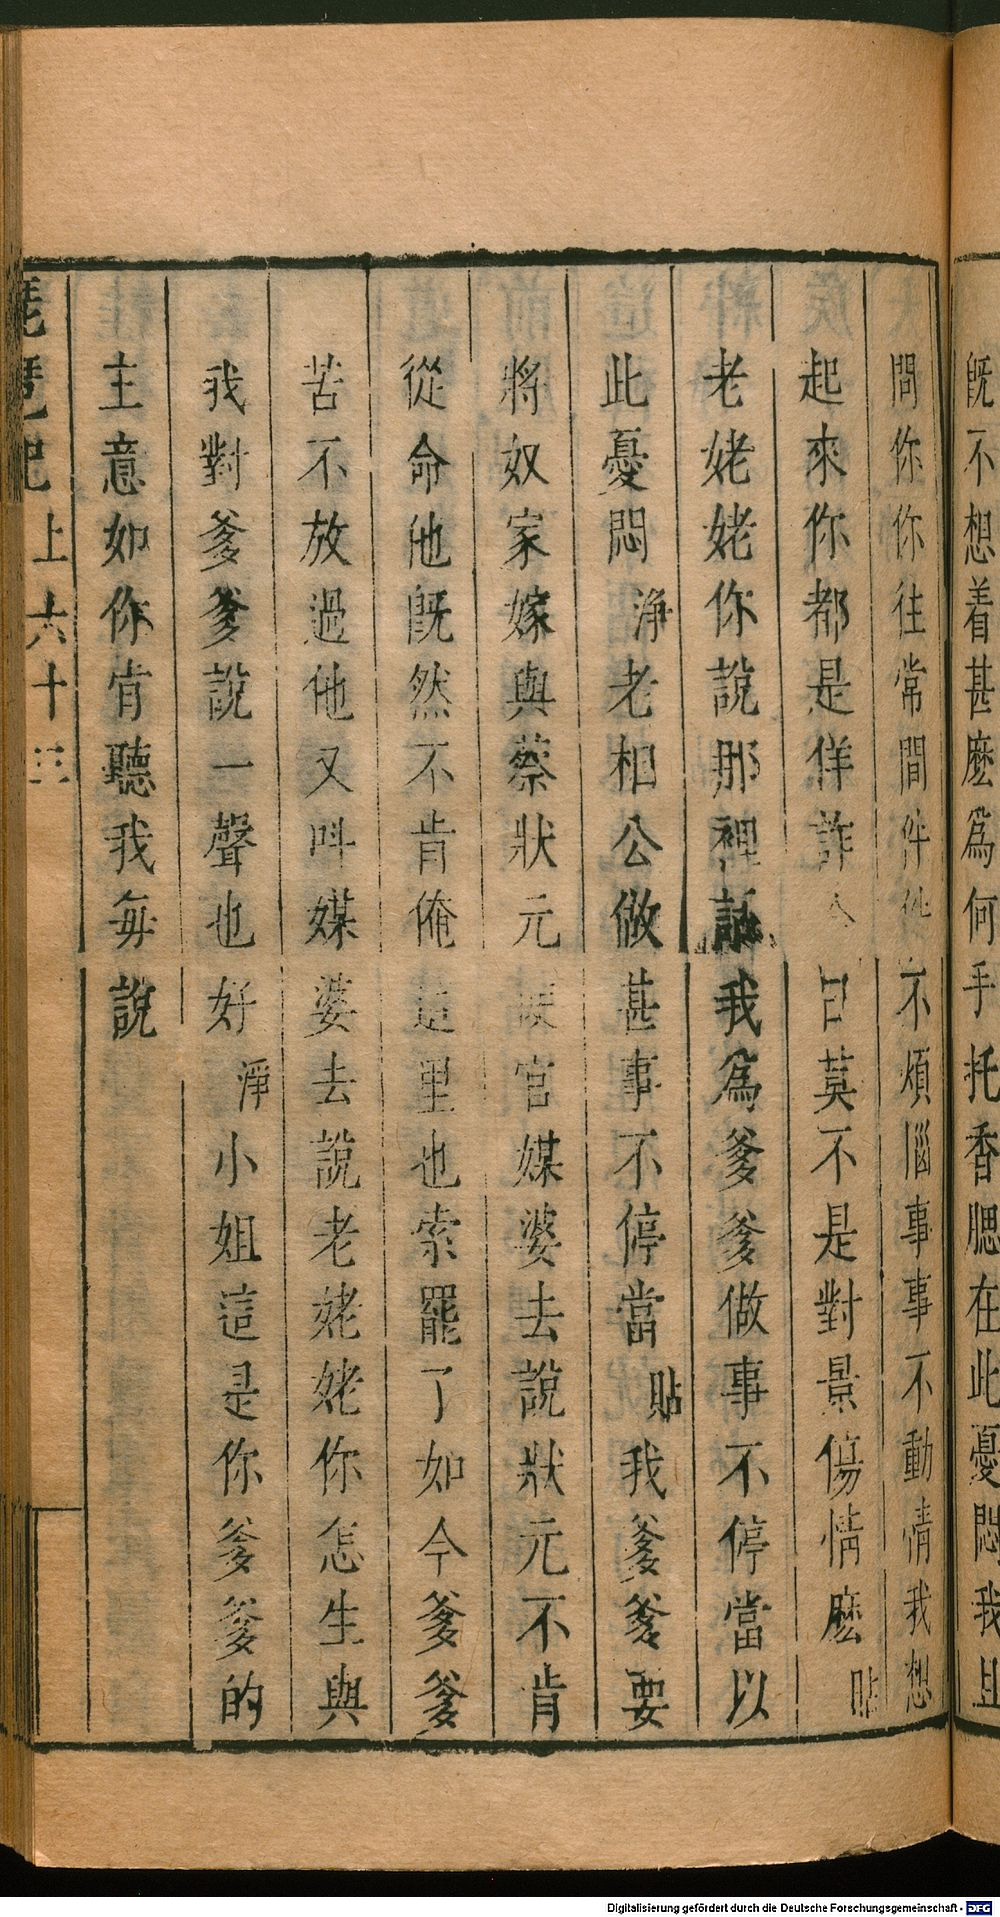 旣不想着甚麽爲何手托香腮在此憂悶我且
問你你往常間件件不煩惱事事不動情我想
起來你都是佯詐 莫不是對景傷情麽貼
老姥姥你說那裡話我爲爹爹做事不停當以
此憂悶淨老相公做甚事不停當貼我爹爹要
將奴家嫁與蔡狀元 官媒婆去說狀元不肯
從命他旣然不肯俺這里也索罷了如今爹爹
苦不放過他又呌媒婆去說老姥姥你怎生與
我對爹爹說一聲也好淨小姐這是你爹爹的
主意如你肯聽我每說
琵琶記 上 六十三
Digitalisierung gefördert durch die Deutsche Forschungsgemeinschaft - DFG